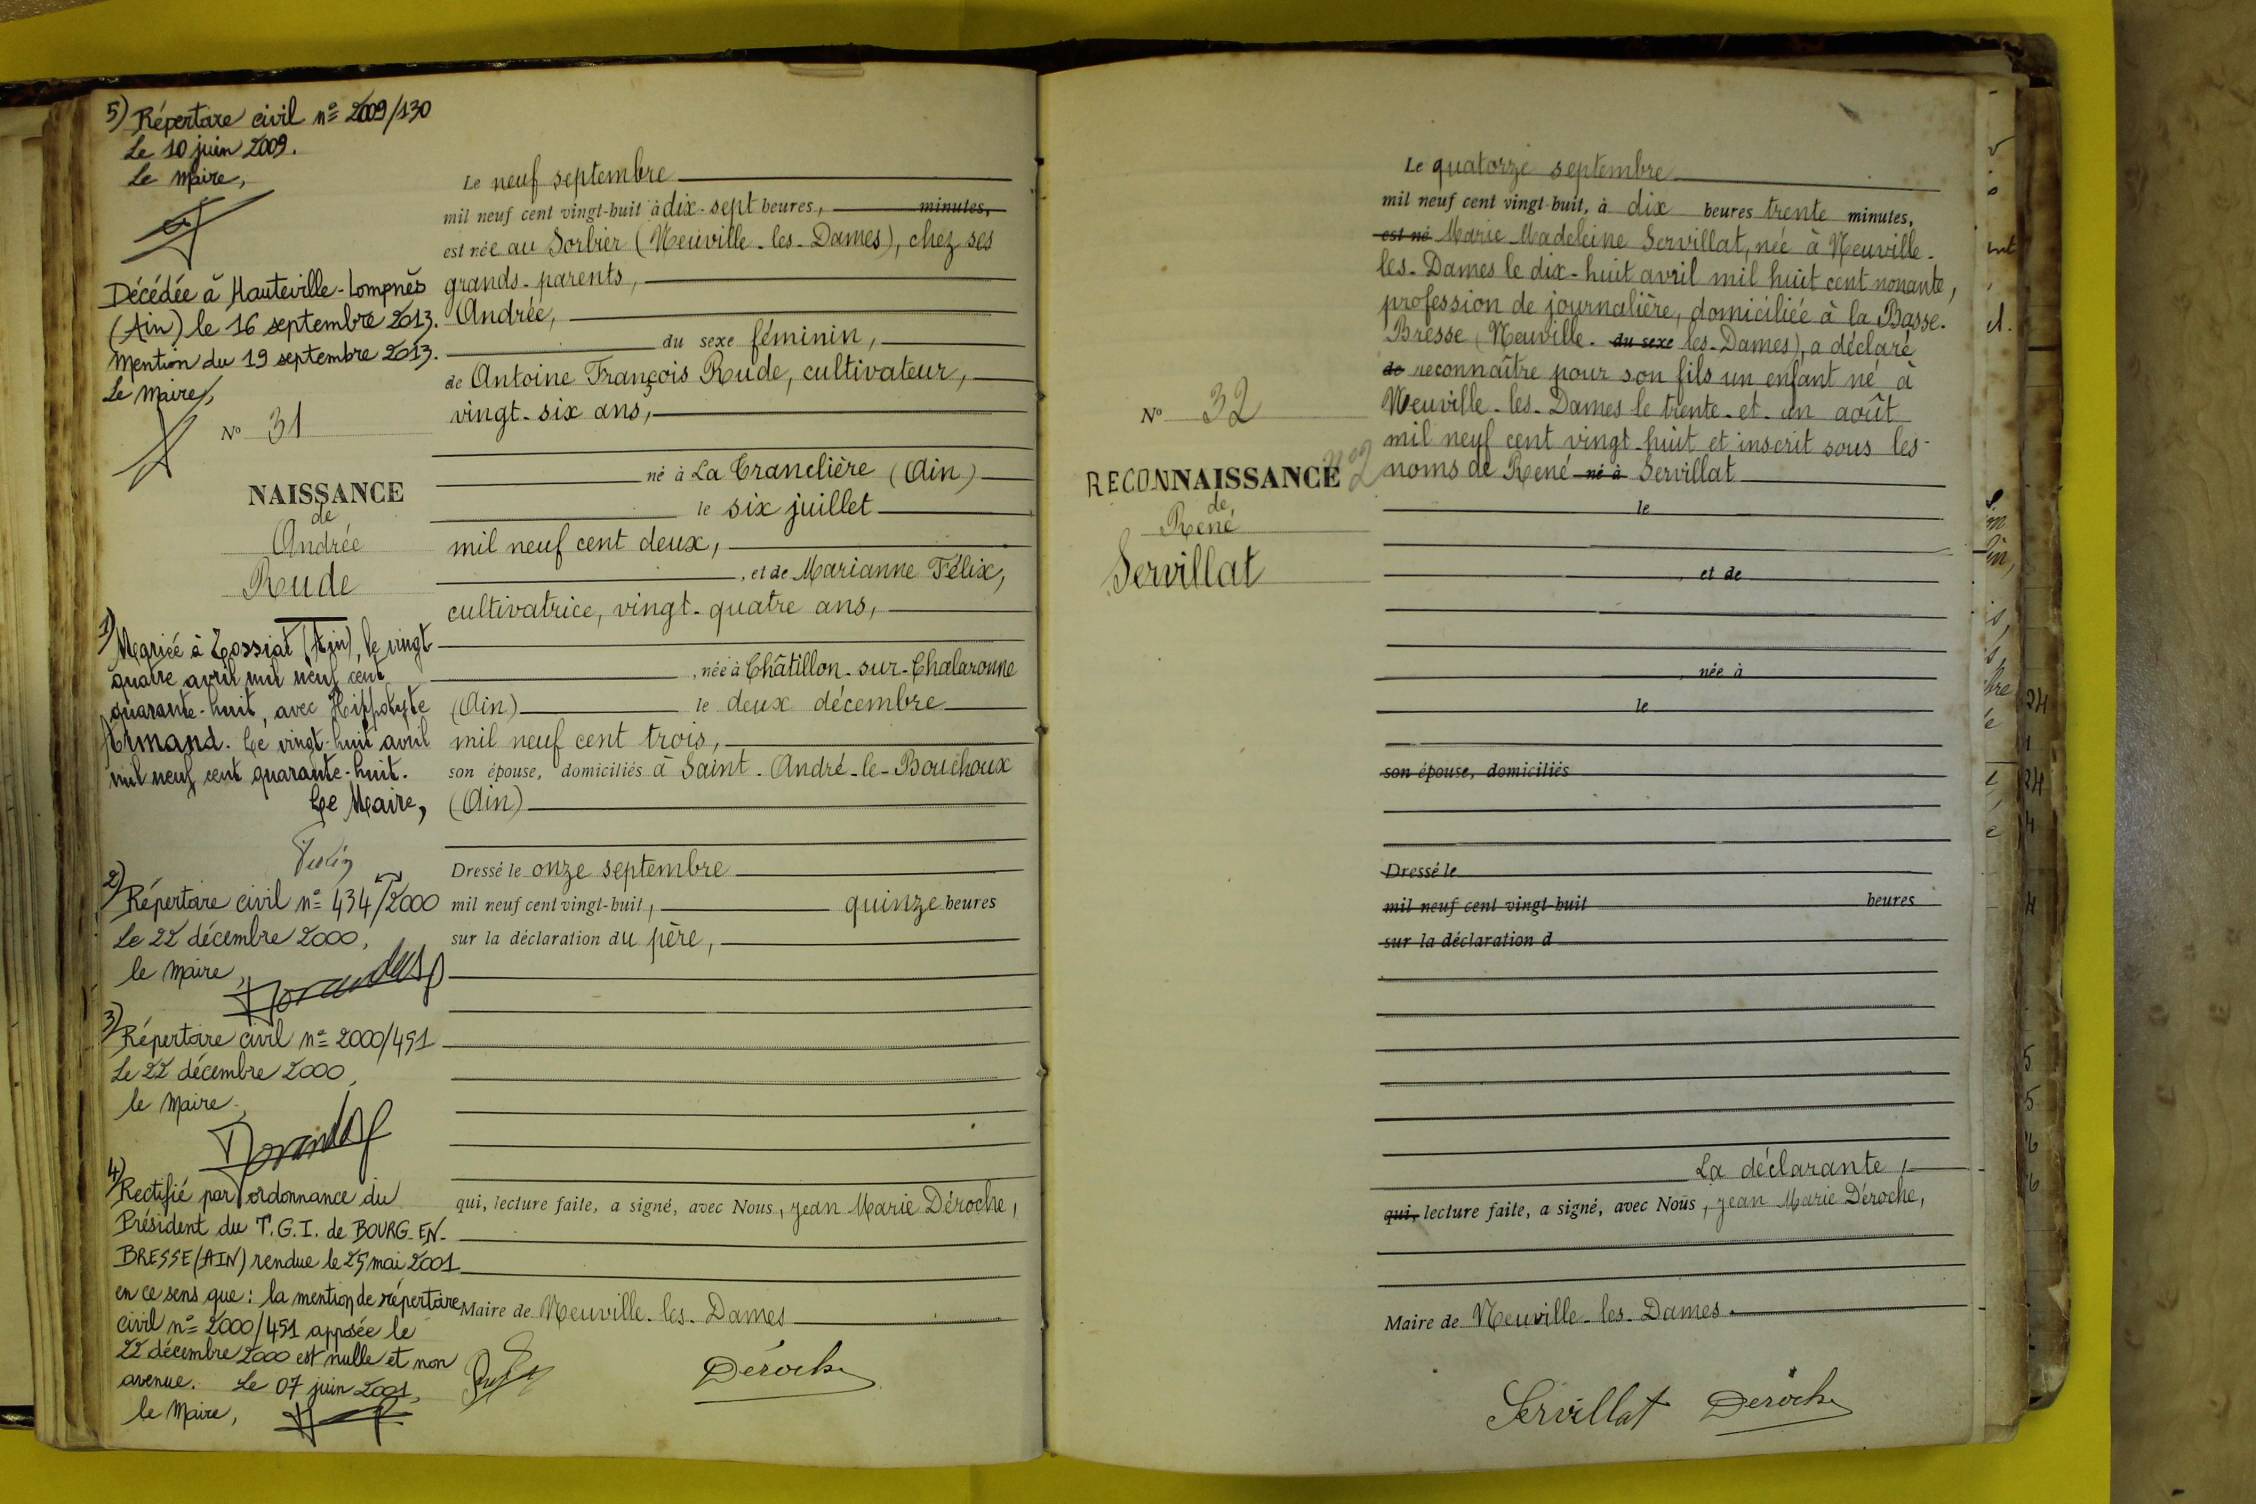 5) Répertoire civil n° 2009/130
Le 10 juin 2009.
Le Maire,
Décédée à Hauteville-Lompnès
(Ain) le 16 septembre 2013.
Mention du 19 septembre 2013.
Le Maire,
N° 31
NAISSANCE
de
Andrée
Rude
1) Mariée à Tossiat (Ain), le vingt
quatre avril mil neuf cent
quarante-huit, avec Hippolyte
Armand. Le vingt-huit avril
mil neuf cent quarante-huit.
Le Maire,
2) Répertoire civil n° 434/2000
Le 22 décembre 2000,
le Maire,
3) Répertoire civil n° 2000/451
Le 22 décembre 2000,
le Maire.
4) Rectifié par ordonnance du
Président du T.G.I. de BOURG-EN-
BRESSE (AIN) rendue le 25 mai 2001
en ce sens que: la mention de répertoire
civil n° 2000/451 apposée le
22 décembre 2000 est nulle et non
avenue. Le 07 juin 2001,
le Maire,
Le neuf septembre
mil neuf cent vingt-huit à dix-sept heures, minutes,
est née au Sorbier (Neuville-les-Dames), chez ses
grands-parents,
Andrée,
du sexe féminin,
de Antoine François Rude, cultivateur,
vingt-six ans,
né à La Tranclière (Ain)
le six juillet
mil neuf cent deux,
, et de Marianne Félix,
cultivatrice, vingt-quatre ans,
, née à Châtillon-sur-Chalaronne
(Ain) le deux décembre
mil neuf cent trois,
son épouse, domiciliés à Saint-André-le-Bouchoux
(Ain)
Dressé le onze septembre
mil neuf cent vingt-huit, quinze heures
sur la déclaration du père,
qui, lecture faite, a signé, avec Nous, Jean Marie Déroche,
Maire de Neuville-les-Dames
Déroche
N° 32
RECONNAISSANCE n°2
de
René
Servillat
Le quatorze septembre
mil neuf cent vingt-huit, à dix heures trente minutes,
est né Marie Madeleine Servillat, née à Neuville-
les-Dames le dix-huit avril mil huit cent nonante,
profession de journalière, domiciliée à la Basse-
Bresse (Neuville- du sexe les-Dames), a déclaré
de reconnaître pour son fils un enfant né à
Neuville-les-Dames le trente-et-un août
mil neuf cent vingt-huit et inscrit sous les
noms de René né à Servillat
le
, et de
, née à
le
son épouse, domiciliés
Dressé le
mil neuf cent vingt-huit heures
sur la déclaration d
La déclarante,
qui, lecture faite, a signé, avec Nous, Jean Marie Déroche,
Maire de Neuville-les-Dames.
Servillat Déroche